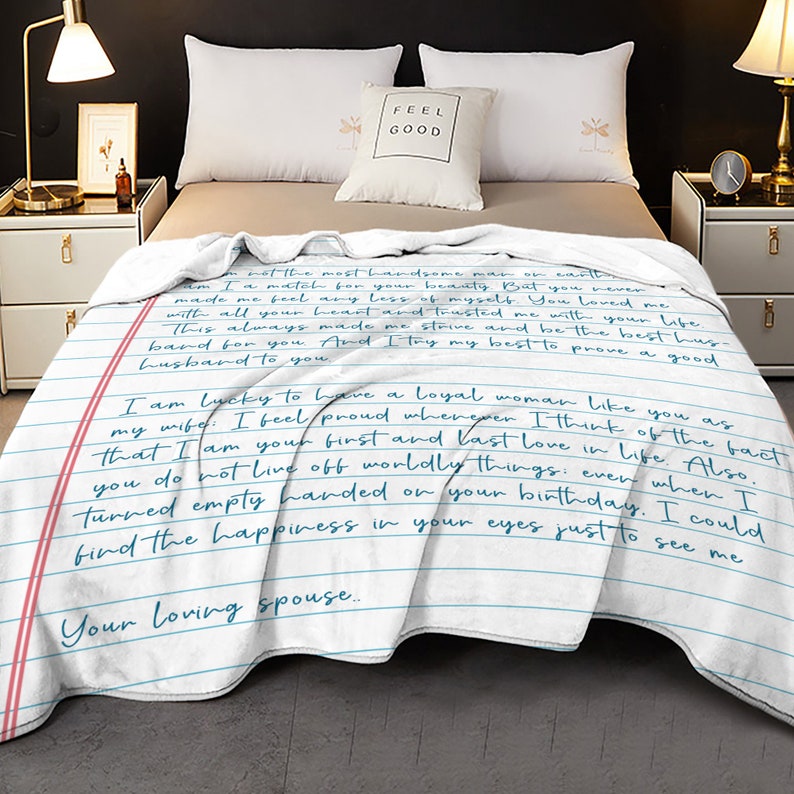 FEEL
GOOD
not the most handsome man on earth,
am I a match for your beauty. But you never
made me feel any less of myself. You loved me
with all your heart and trusted me with your life.
This always made me strive and be the best hus-
band for you. And I try my best to prove a good
husband to you.
I am lucky to have a loyal woman like you as
my wife; I feel proud whenever I think of the fact
that I am your first and last love in life. Also,
you do not live off worldly things; even when I
turned empty handed on your birthday, I could
find the happiness in your eyes just to see me
Your loving spouse..